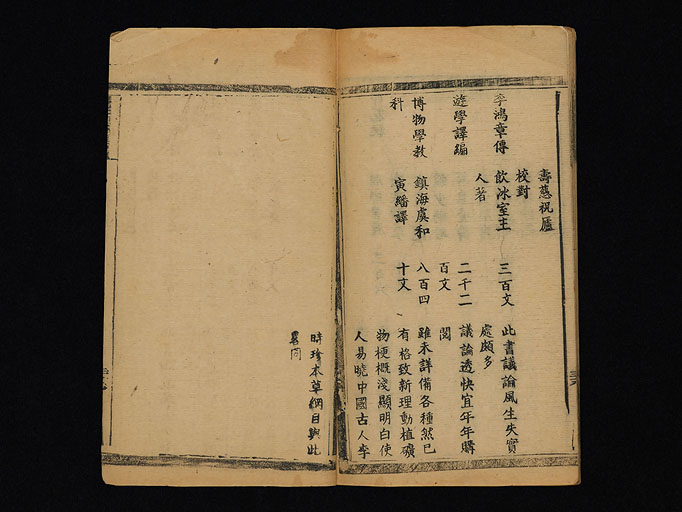 壽慈祝廬
校對
李鴻章傳 飲冰室主 三百文 此書議論風生失實
人著 處頗多
遊學譯編 二千二 議論透快宜年年購
百文 閲
博物學教 鎮海虞和 八百四 雖未詳備各種然已
科 寅繙譯 十文 有格致新理動植礦
物梗概淺顯明白使
人易曉中國古人李
時珍本草綱目與此
畧同